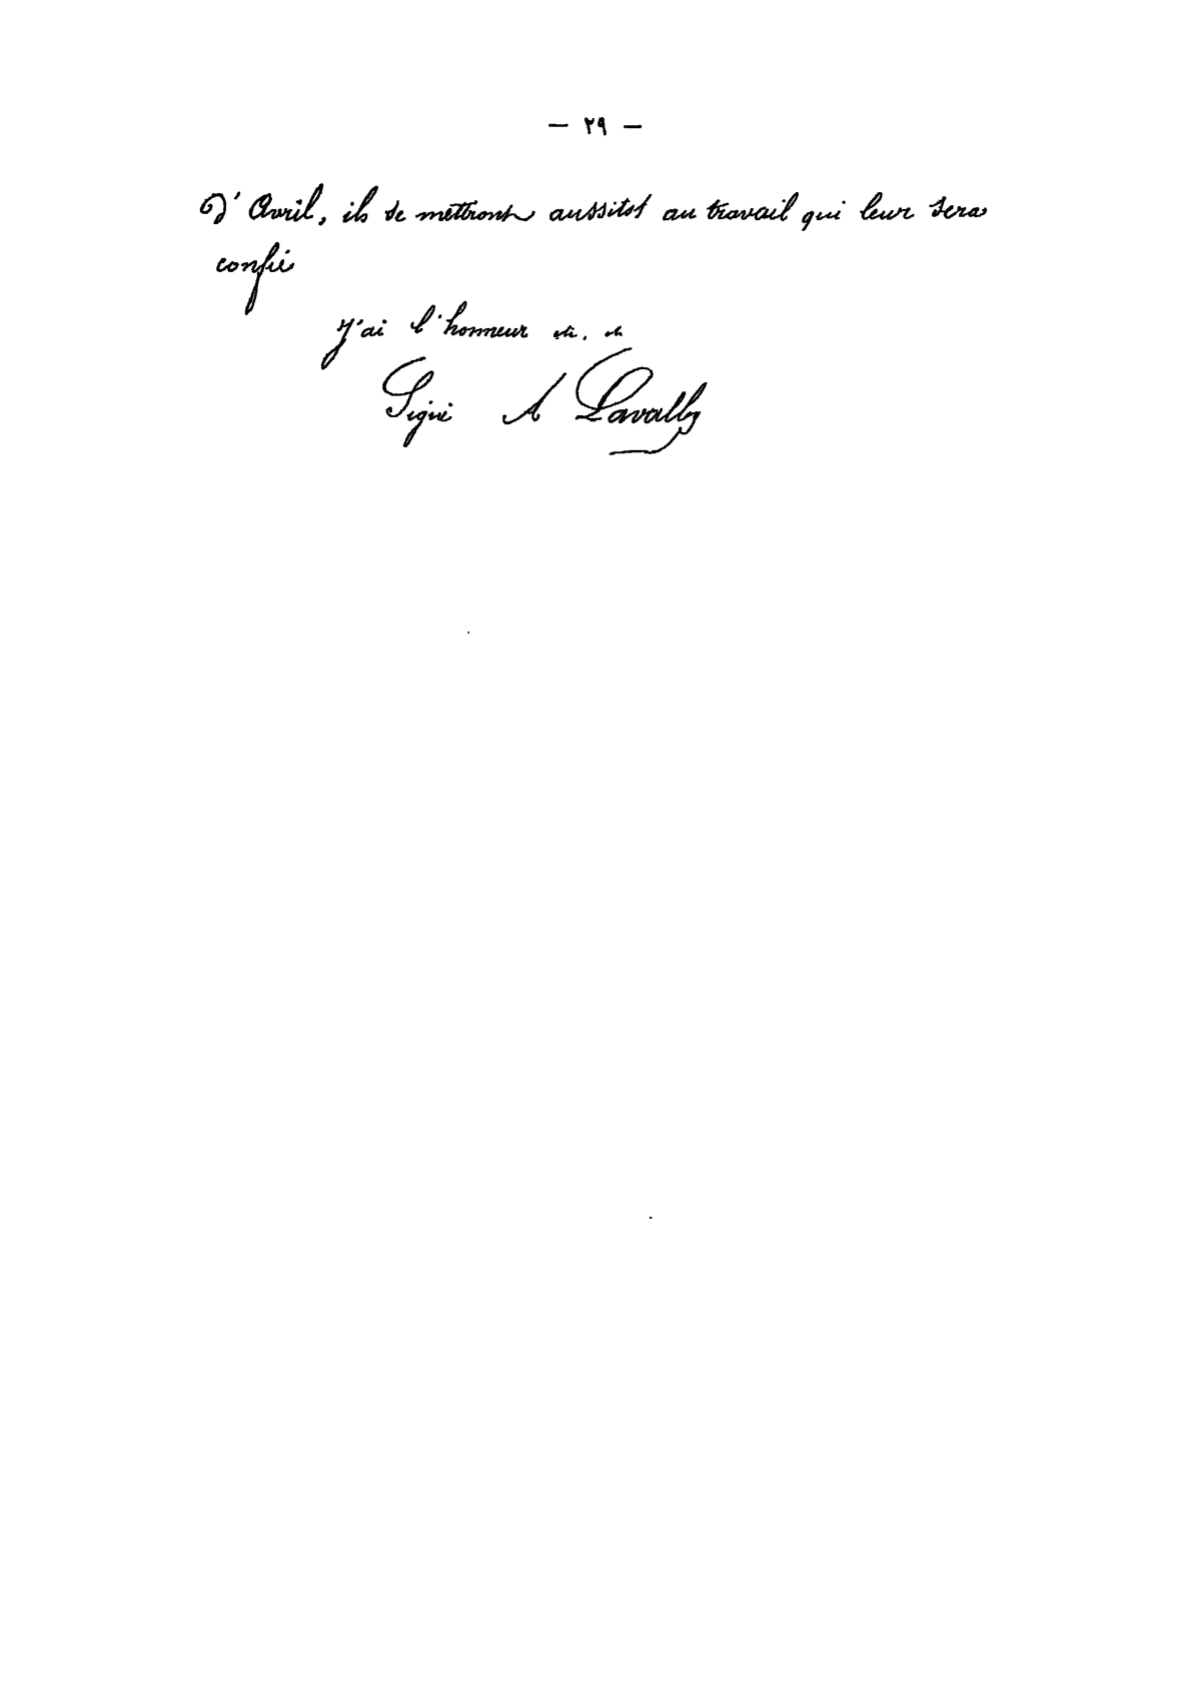 — ٢٩ —
D'Avril, ils se mettront aussitot au travail qui leur sera
confié
J'ai l'honneur etc. etc
Signé A Lavalley